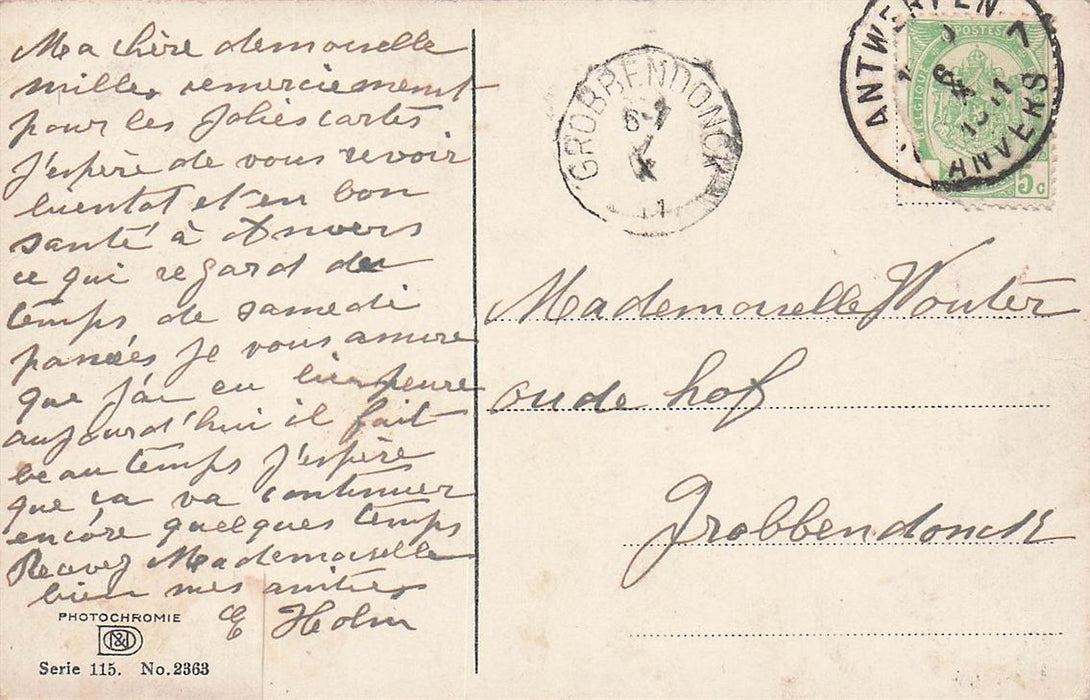 Ma chère demoiselle
milles remerciement
pour les Jolies cartes
J'espère de vous revoir
bientot et en bon
santé à Anvers
ce qui regard de
temps de samedi
passées je vous assure
que j'ai eu bien peure
aujourd'hui il fait
beau temps J'espère
que ça va continuer
encore quelques temps
Recevez Mademoiselle
bien mes amitiés
E Holm
PHOTOCHROMIE
D&D
Serie 115. No. 2363
GROBBENDONCK
6-7
X
11
ANTWERPEN 7
ANVERS
POSTES
BELGIQUE
5c
Mademoiselle Wouter
oude hof
Grobbendonck